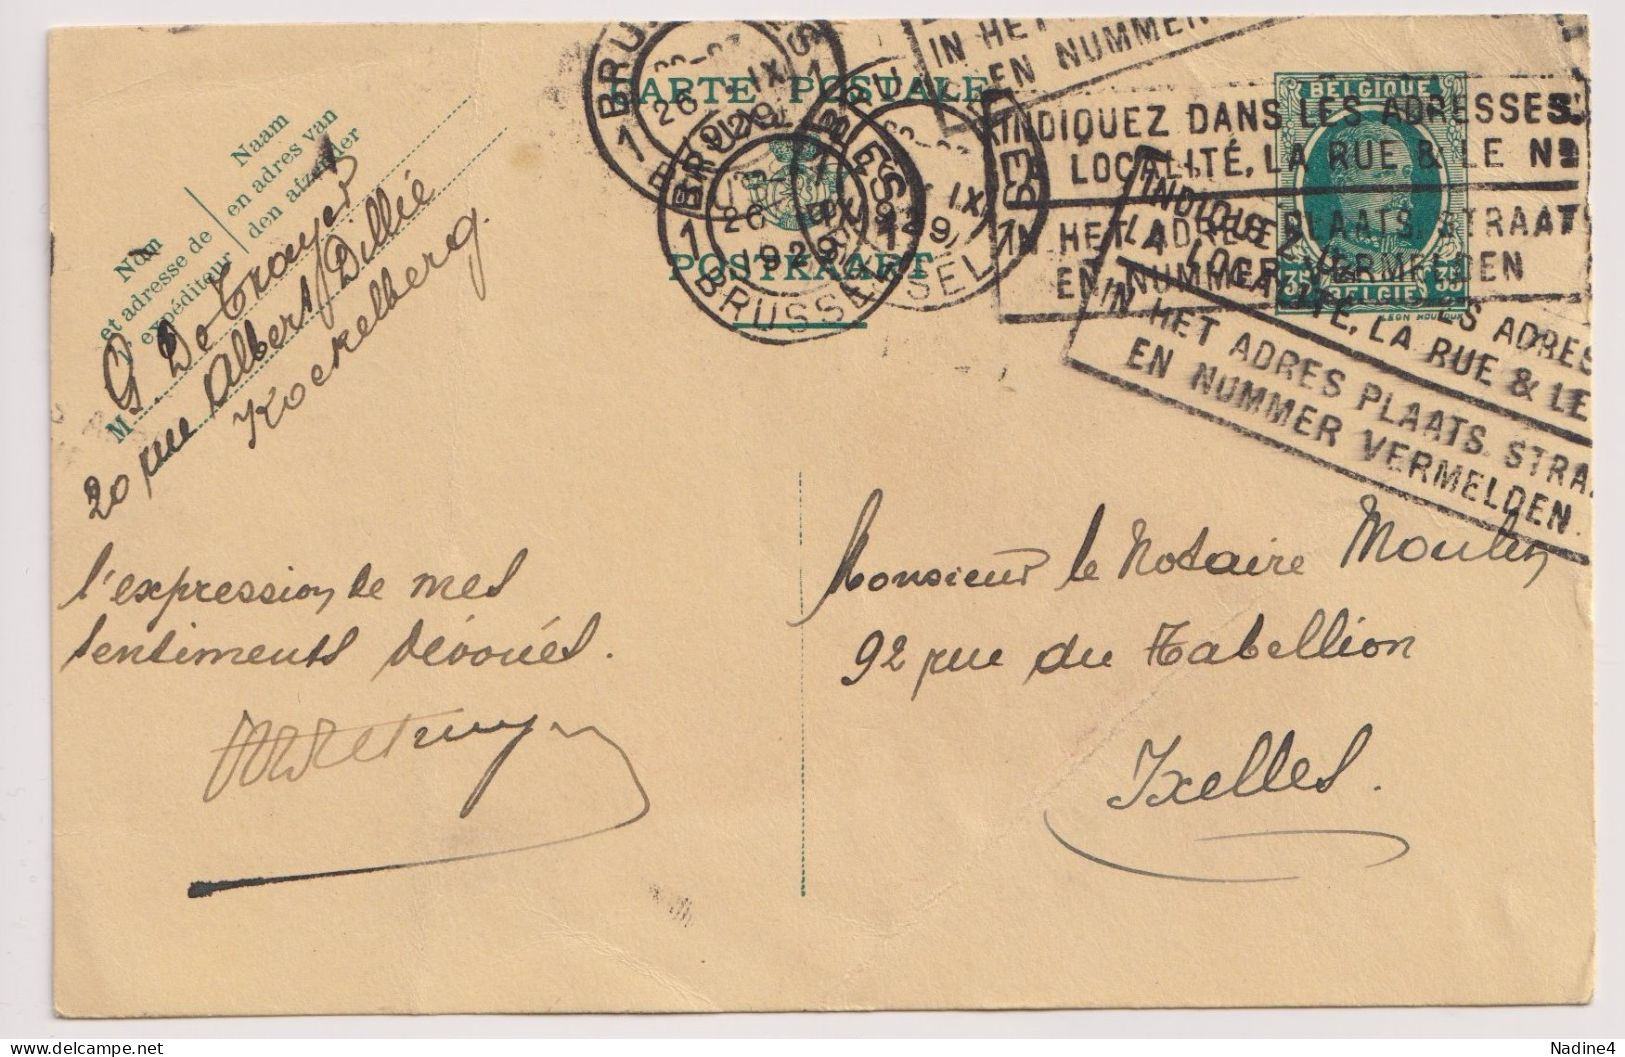 CARTE POSTALE
POSTKAART
Naam
en adres van
den afzender
Nom
et adresse de
l'expéditeur
M
G De Troyer
20 rue Albert Dillié
Koekelberg.
l'expression de mes
sentiments dévoués.
Monsieur le Notaire Moulin
92 rue du Tabellion
Ixelles.
BELGIQUE
BELGIË
35 35
BRUSSEL 1
26 IX 1929
IN HET
EN NUMMER
INDIQUEZ DANS LES ADRESSES
LOCALITÉ, LA RUE & LE No
IN HET ADRES PLAATS, STRAAT
EN NUMMER VERMELDEN
LA LOCALITÉ, LA RUE & LE
IN HET ADRES PLAATS. STRA
EN NUMMER VERMELDEN.
Nadine4